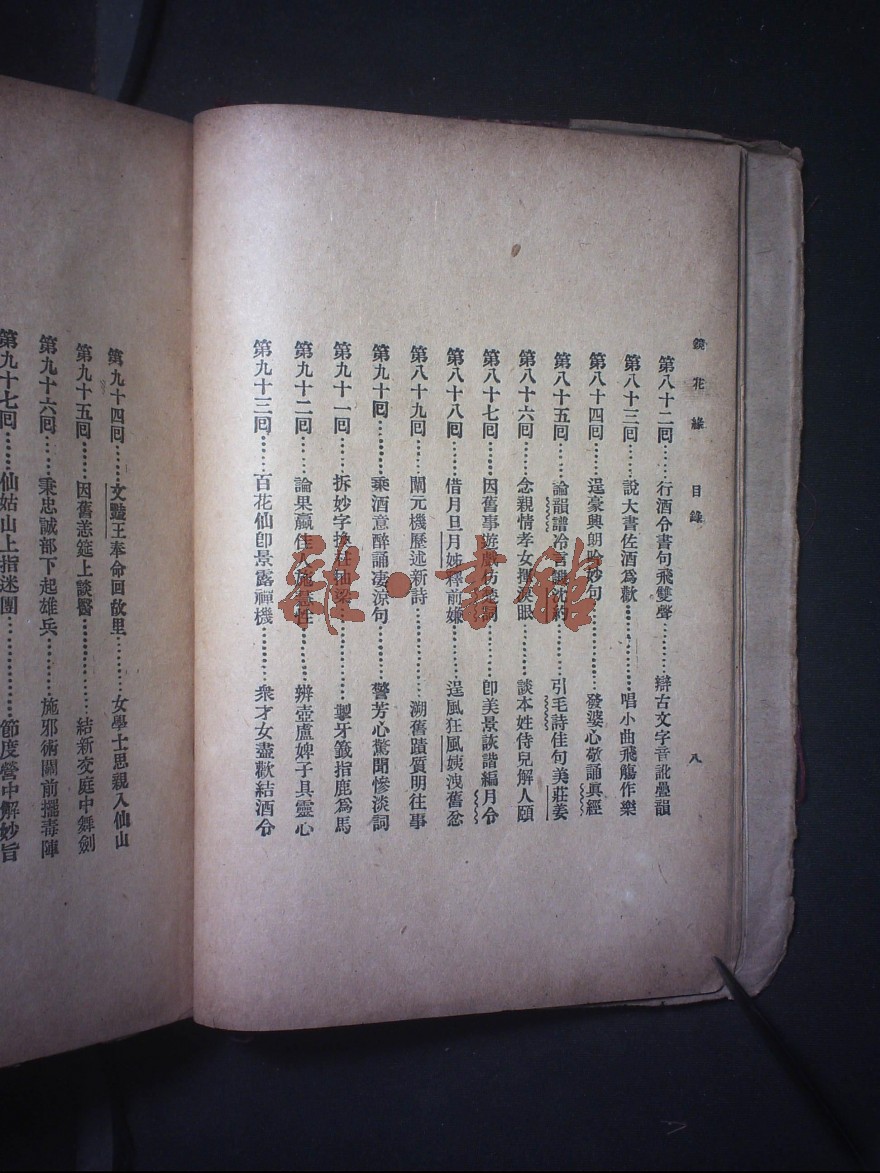 鏡花緣 目錄 八
第八十二回……行酒令書句飛雙聲………辯古文字音訛疊韻
第八十三回……說大書佐酒爲歡………唱小曲飛觴作樂
第八十四回……逞豪興朗吟妙句………發婆心敬誦眞經
第八十五回……論韻譜冷言譏沈約………引毛詩佳句美莊姜
第八十六回……念親情孝女揮淚眼………談本姓侍兒解人頤
第八十七回……因舊事遊戲仿楚制………卽美景詼諧編月令
第八十八回……借月旦月姊釋前嫌………逞風狂風姨洩舊忿
第八十九回……闡元機歷述新詩………溯舊蹟質明往事
第九十回………乘酒意醉誦淒涼句………警芳心驚聞慘淡詞
第九十一回……拆妙字換柱抽梁………掣牙籤指鹿爲馬
第九十二回……論果蠃佳人施慧性………辨壺盧婢子具靈心
第九十三回……百花仙卽景露禪機………衆才女盡歡結酒令
第九十四回……文豔王奉命回故里………女學士思親入仙山
第九十五回……因舊恙筵上談醫………結新交庭中舞劍
第九十六回……秉忠誠部下起雄兵………施邪術關前擺毒陣
第九十七回……仙姑山上指迷團………節度營中解妙旨
雜·書館